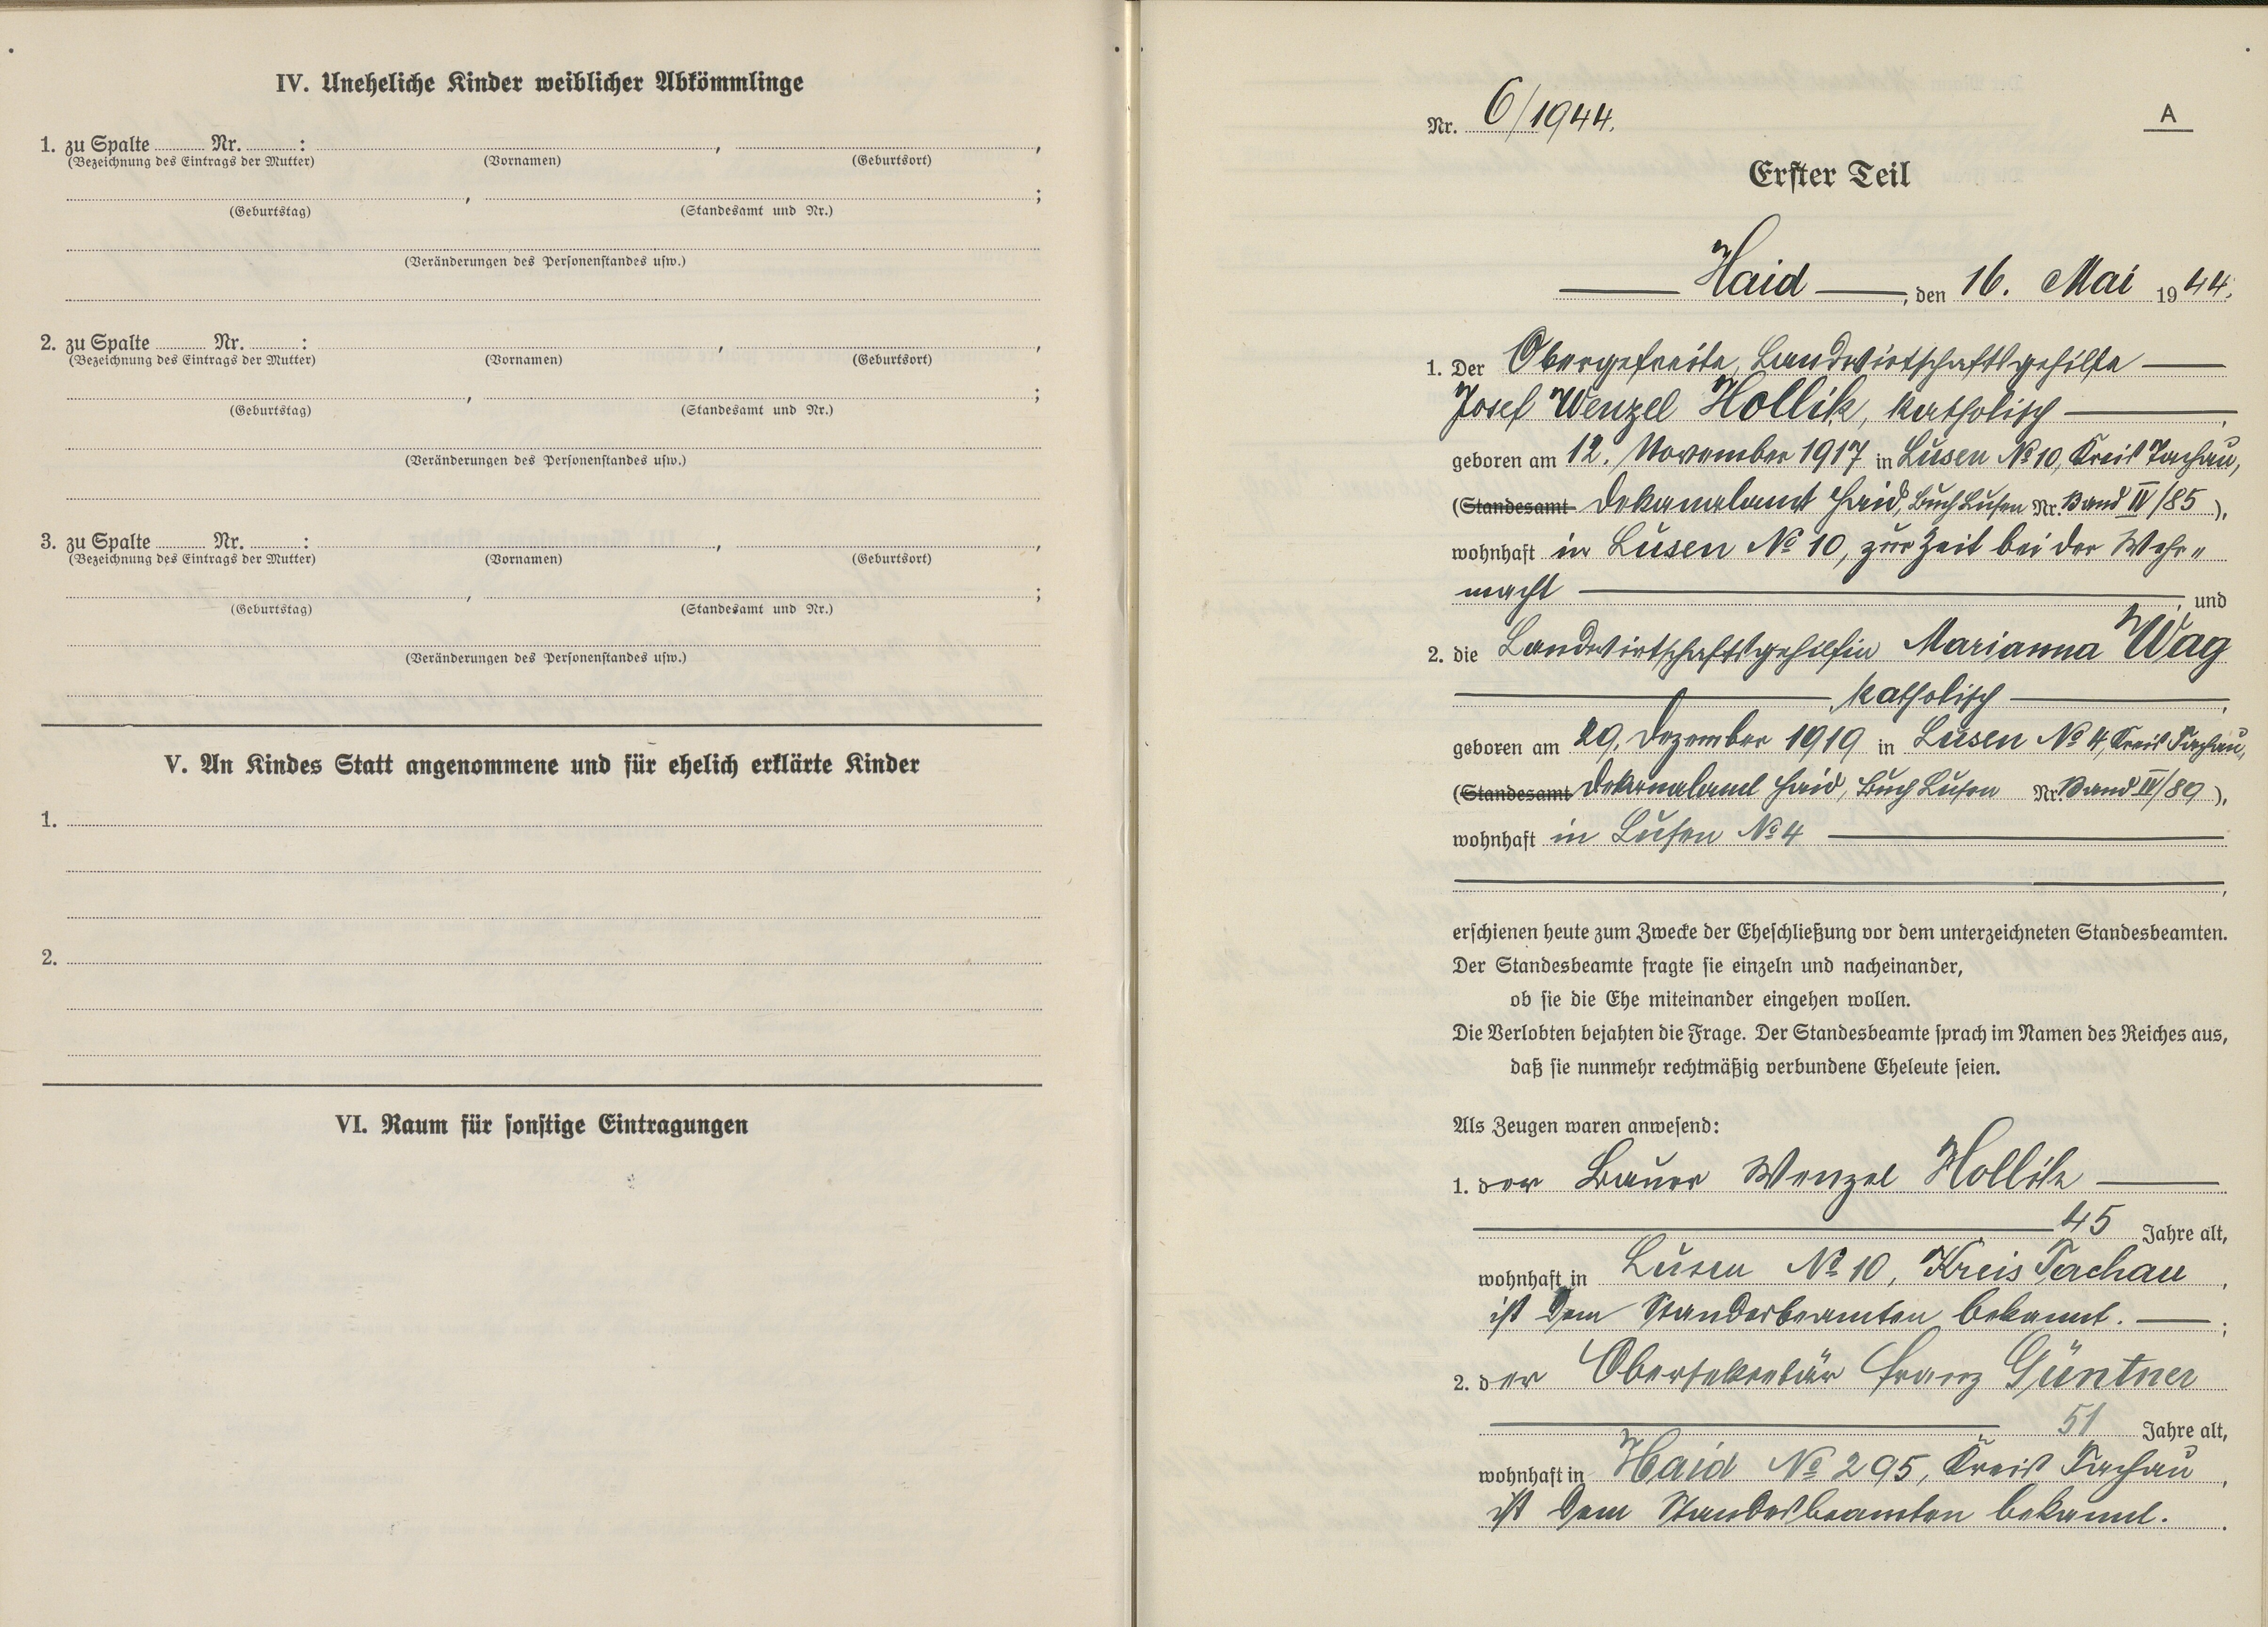 IV. Uneheliche Kinder weiblicher Abkömmlinge
1. zu Spalte ........ Nr. ........ :
(Bezeichnung des Eintrags der Mutter) (Vornamen) (Geburtsort)
(Geburtstag) (Standesamt und Nr.)
(Veränderungen des Personenstandes usw.)
2. zu Spalte ........ Nr. ........ :
(Bezeichnung des Eintrags der Mutter) (Vornamen) (Geburtsort)
(Geburtstag) (Standesamt und Nr.)
(Veränderungen des Personenstandes usw.)
3. zu Spalte ........ Nr. ........ :
(Bezeichnung des Eintrags der Mutter) (Vornamen) (Geburtsort)
(Geburtstag) (Standesamt und Nr.)
(Veränderungen des Personenstandes usw.)
V. An Kindes Statt angenommene und für ehelich erklärte Kinder
1.
2.
VI. Raum für sonstige Eintragungen
Nr. 6/1944.
A
Erster Teil
Haid, den 16. Mai 1944.
1. Der Obergefreite, Landwirtschaftsgehilfe
Josef Wenzel Hollik, katholisch,
geboren am 12. November 1917 in Lusen No 10, Kreis Tachau,
(Standesamt Dekanalamt Haid, Buch Lusen Nr. Band IV/85),
wohnhaft in Lusen No 10, zur Zeit bei der Wehr„
macht, und
2. die Landwirtschaftsgehilfin Marianna Wag
katholisch,
geboren am 29. Dezember 1919 in Lusen No 4, Kreis Tachau,
(Standesamt Dekanalamt Haid, Buch Lusen Nr. Band IV/89),
wohnhaft in Lusen No 4
,
erschienen heute zum Zwecke der Eheschließung vor dem unterzeichneten Standesbeamten.
Der Standesbeamte fragte sie einzeln und nacheinander,
ob sie die Ehe miteinander eingehen wollen.
Die Verlobten bejahten die Frage. Der Standesbeamte sprach im Namen des Reiches aus,
daß sie nunmehr rechtmäßig verbundene Eheleute seien.
Als Zeugen waren anwesend:
1. der Bauer Wenzel Hollik
45 Jahre alt,
wohnhaft in Lusen No 10, Kreis Tachau,
ist dem Standesbeamten bekannt. ;
2. der Obersekretär Franz Güntner
51 Jahre alt,
wohnhaft in Haid No 295, Kreis Tachau,
ist dem Standesbeamten bekannt.